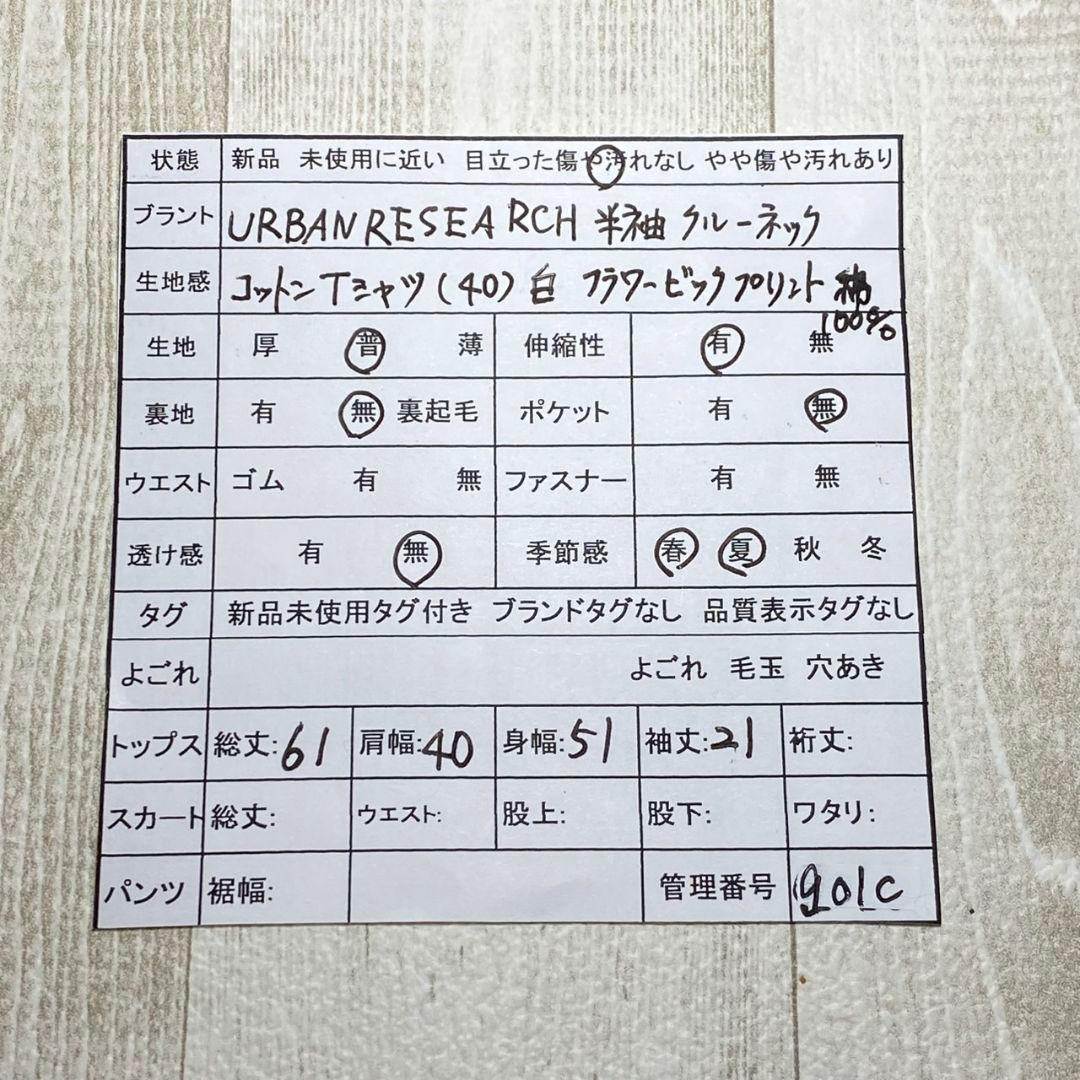 状態 新品 未使用に近い 目立った傷や汚れなし やや傷や汚れあり
ブラント URBAN RESEARCH 半袖 クルーネック
生地感 コットンTシャツ(40)白 フラワービックプリント 綿
100%
生地 厚 普 薄 伸縮性 有 無
裏地 有 無 裏起毛 ポケット 有 無
ウエスト ゴム 有 無 ファスナー 有 無
透け感 有 無 季節感 春 夏 秋 冬
タグ 新品未使用タグ付き ブランドタグなし 品質表示タグなし
よごれ よごれ 毛玉 穴あき
トップス 総丈:61 肩幅:40 身幅:51 袖丈:21 裄丈:
スカート 総丈: ウエスト: 股上: 股下: ワタリ:
パンツ 裾幅: 管理番号 901c